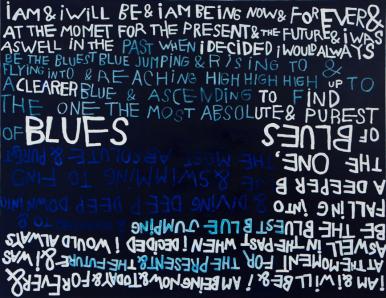 iAM & iWILL BE & iAM BEING NOW & FOR EVER &
AT THE MOMET FOR THE PRESENT & THE FUTURE & iWAS
ASWELL IN THE PAST WHEN iDECIDED iWOULD ALWAYS
BE THE BLUEST BLUE JUMPING & RISING TO &
FLYING INTO & REACHING HIGH HIGH HIGH UP TO
A CLEARER BLUE & ASCENDING TO FIND
THE ONE THE MOST ABSOLUTE & PUREST
OF BLUES
OF BLUES
THE ONE, THE MOST ABSOLUTE & PUREST
A DEEPER B & SWIMMING TO FIND
FALLING INTO & DIVING & DEEP DEEP DOWN INTO
BE THE BLUEST BLUE JUMPING
ASWELL IN THE PAST WHEN I DECIDED I WOULD ALWAYS
AT THE MOMENT FOR THE PRESENT & THE FUTURE & iWAS
iAM & iWILL BE & iAM BEING NOW & TODAY & FOREVER &